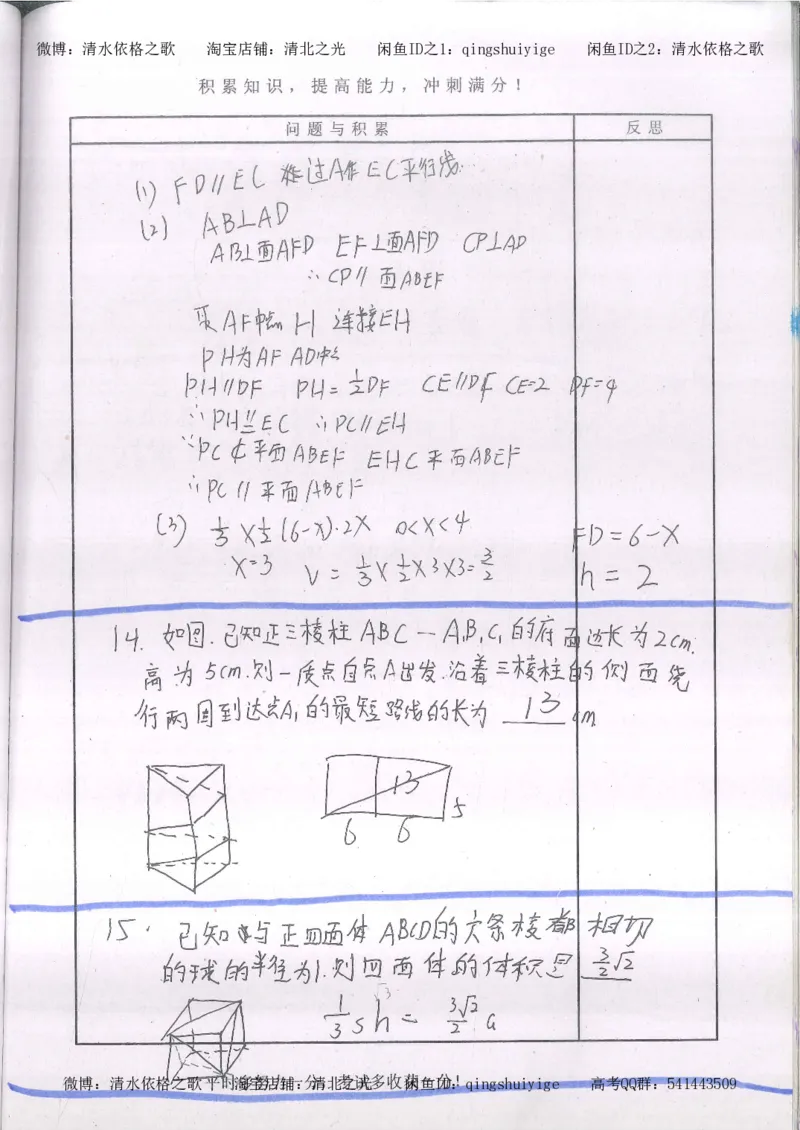 微博：清水依格之歌 淘宝店铺：清北之光 闲鱼ID之1：qingshuiyige 闲鱼ID之2：清水依格之歌
积累知识，提高能力，冲刺满分！
问题与积累 反思
(1) FD∥EC 过A作EC平行线.
(2) AB⊥AD
AB⊥面AFD EF⊥面AFD CP⊥AD
∴CP∥面ABEF
取AF中点H 连接EH
PH为AF AD中
PH∥DF PH=½DF CE∥DF CE=2 DF=4
∴PH EC ∴PC∥EH
∵PC⊄平面ABEF EHC平面ABEF
∴PC∥平面ABEF
(3) ⅓×½(6-x)·2x 0<x<4 FD=6-x
x=3 V=⅓×½×3×3=3/2 h=2
14. 如图.已知正三棱柱ABC-A₁B₁C₁的底面边长为2cm.
高为5cm.则一质点自点A出发.沿着三棱柱的侧面绕
行两圈到达点A₁的最短路线的长为 13 cm
13
5
6 6
15. 已知与正四面体ABCD的六条棱都相切
的球的半径为1.则四面体的体积是 3/2√2
1/3 sh = 3√2/2 a
微博：清水依格之歌 平时 淘宝店铺：清北之光 考试多收获一分！ 闲鱼ID：qingshuiyige 高考QQ群：541443509